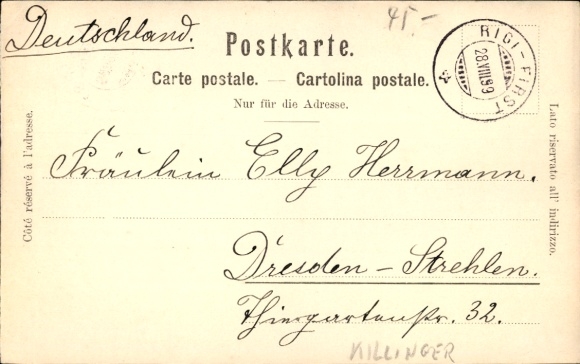 Deutschland.
45.-
Postkarte.
Carte postale. — Cartolina postale.
Nur für die Adresse.
RIGI-FIRST
28.VIII.99
Côté réservé à l'adresse.
Lato riservato all' indirizzo.
Fräulein Elly Herrmann.
Dresden-Strehlen.
Thiergartenstr. 32.
KILLINGER